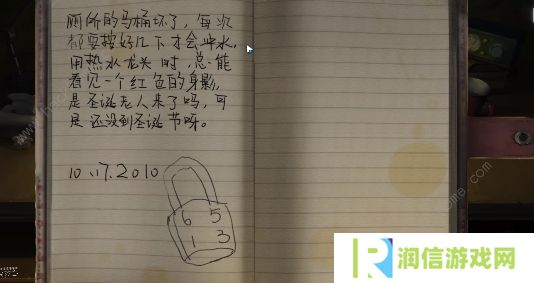 厕所的马桶坏了，每次
都要按好几下才会冲水，
用热水龙头时，总能
看见一个红色的身影，
是圣诞老人来了吗，可
是还没到圣诞节呀。
10.17.2010
6 5
1 3
润信游戏网